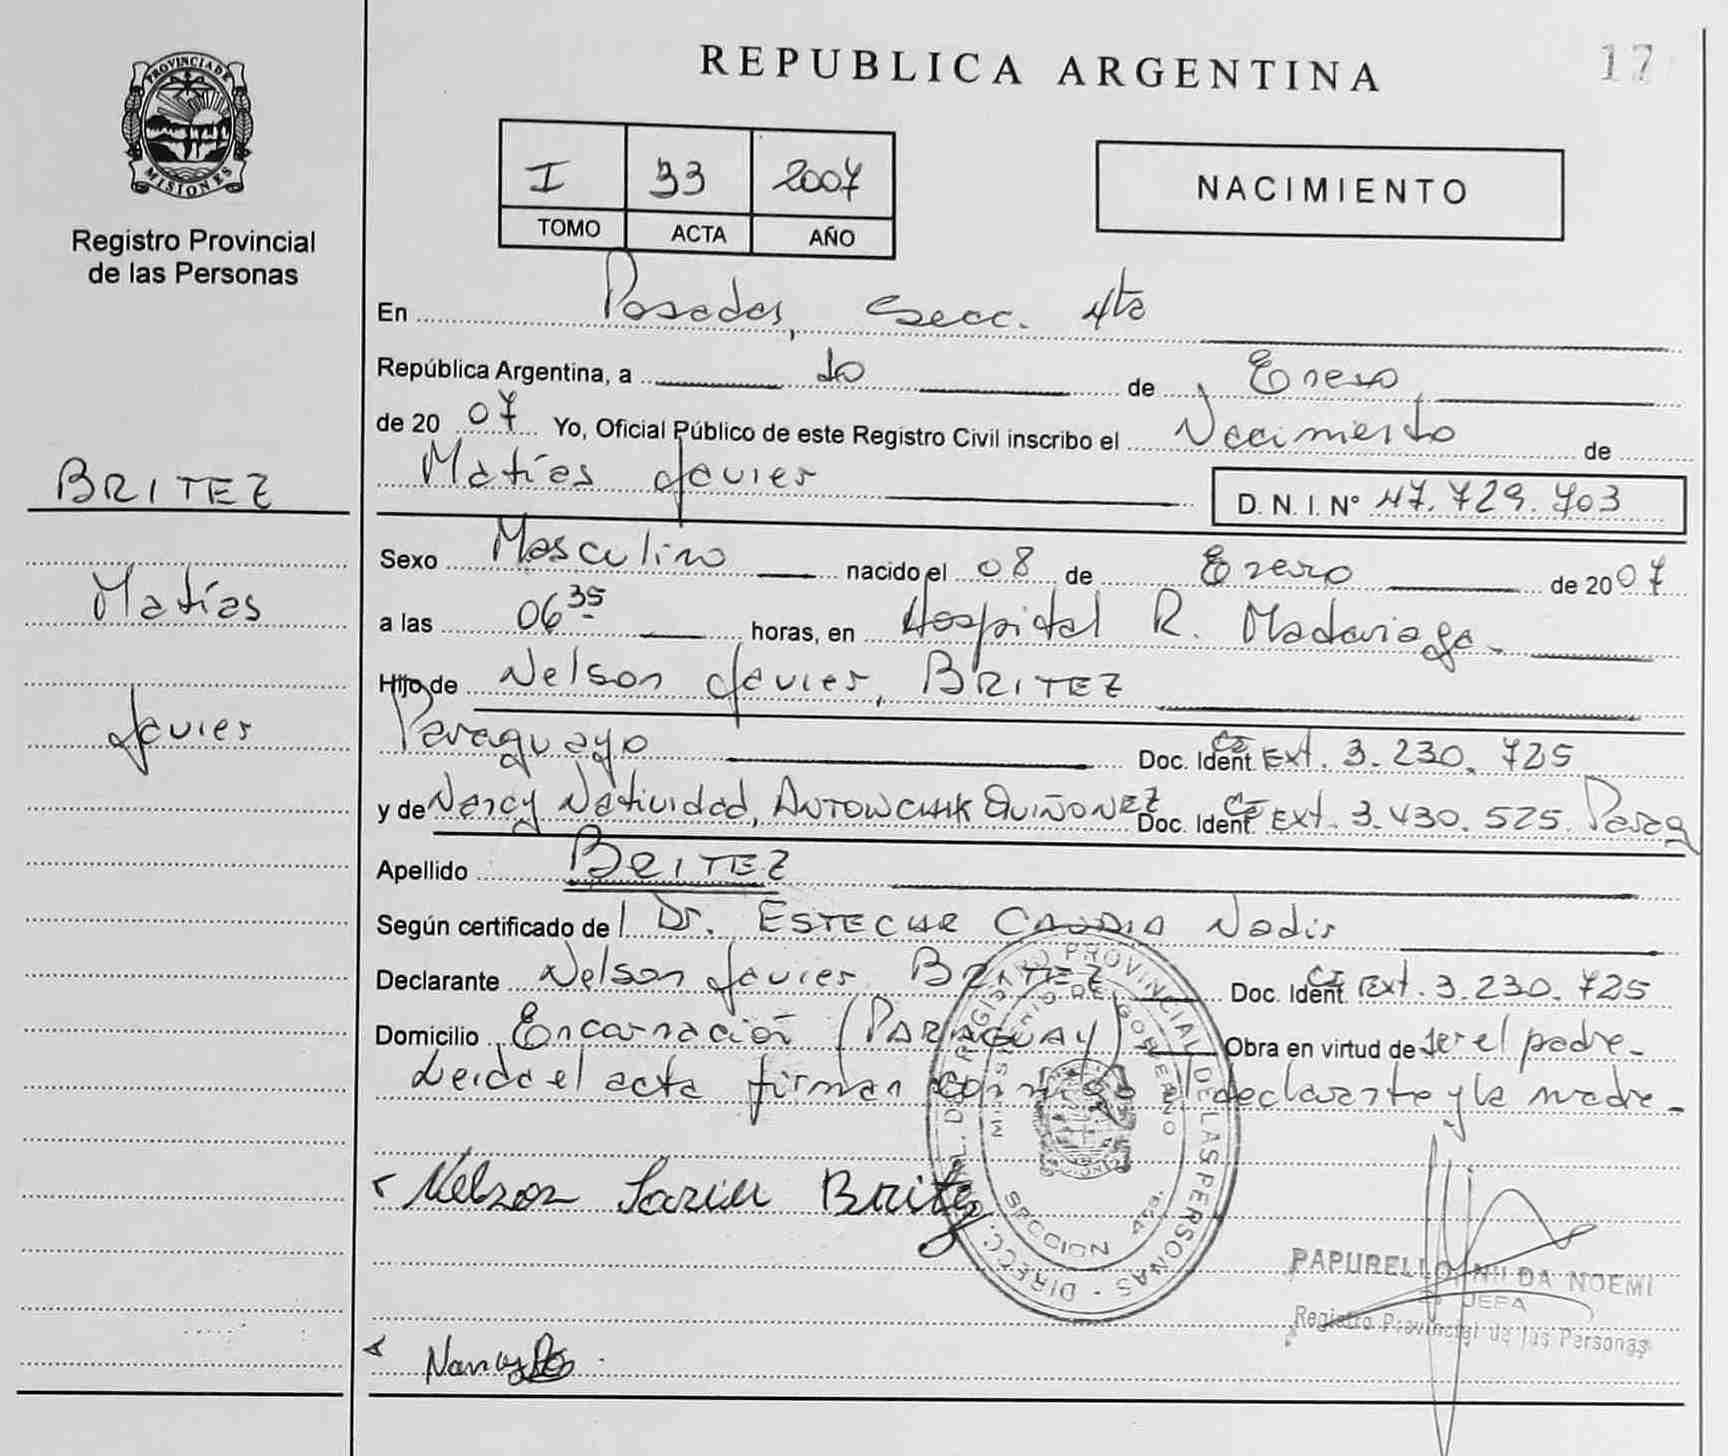 REPUBLICA ARGENTINA
17
PROVINCIA DE MISIONES
Registro Provincial
de las Personas
I 33 2007
TOMO ACTA AÑO
NACIMIENTO
En Posadas, Secc. 4ta
República Argentina, a 10 de Enero
de 2007 Yo, Oficial Público de este Registro Civil inscribo el Nacimiento de
Matías Javier D. N. I. Nº 47.729.703
BRITEZ
Matías
Javier
Sexo Masculino nacido el 08 de Enero de 2007
a las 06 35 horas, en Hospital R. Madariaga.
Hijo de Nelson Javier, BRITEZ
Paraguayo Doc. Ident. CI Ext. 3.230.725
y de Nancy Natividad, ANTOWCHIK QUIÑONEZ Doc. Ident. CI Ext. 3.430.525. Parag
Apellido BRITEZ
Según certificado de Dr. Nadir
Declarante Nelson Javier BRITEZ Doc. Ident. CI Ext. 3.230.725
Domicilio Encarnación (PARAGUAY) Obra en virtud de ser el padre.
Leida el acta firman conmigo el declarante y la madre.
Nelson Javier Britez
DIRECC. GRAL. DEL REGISTRO PROVINCIAL DE LAS PERSONAS
MINISTERIO DE GOBIERNO
SECCION 4ta.
PAPURELLO NILDA NOEMI
JEFA
Registro Provincial de las Personas
Nancy